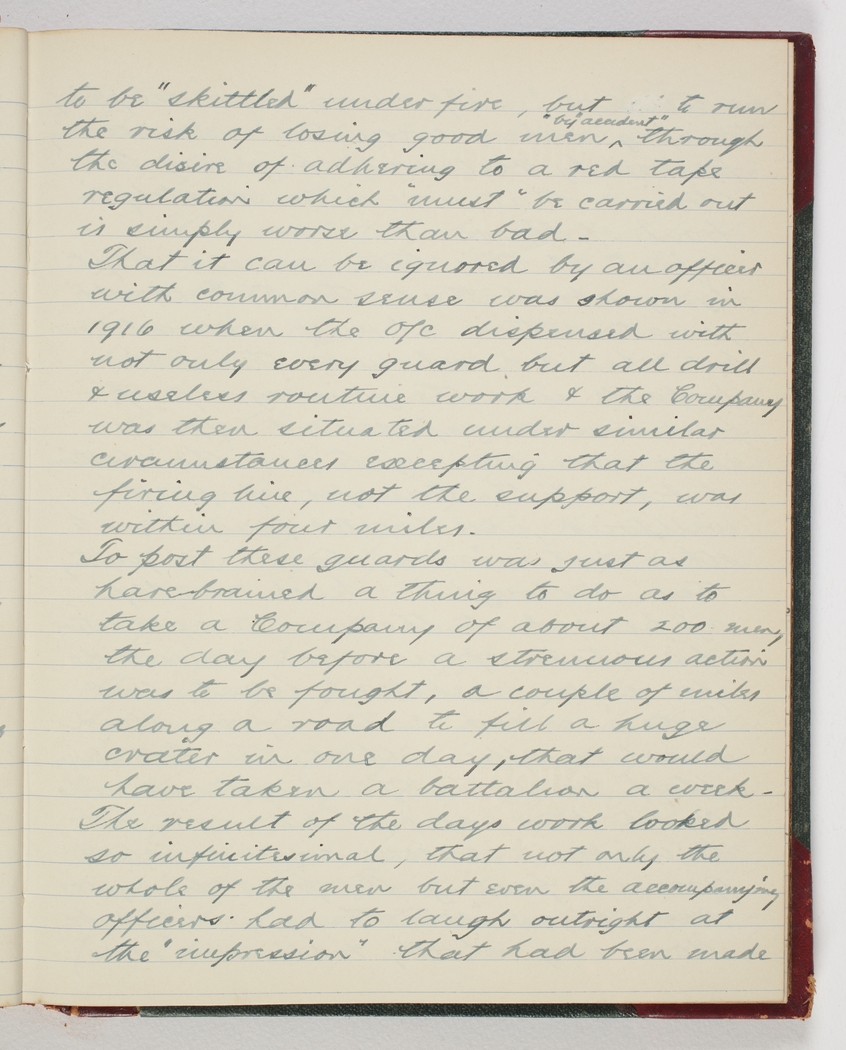 to be "skittled" under fire, but to run
the risk of losing good men ^ "by accident" through
the disire of adhering to a red tape
regulation which "must" be carried out
is simply worse than bad -
That it can be ignored by an officer
with common sense was shown in
1916 when the O/c dispensed with
not only every guard but all drill
& useless routine work & the Company
was then situated under similar
circumstances excepting that the
firing line, not the support, was
within four miles.
To post these guards was just as
hare-brained a thing to do as to
take a Company of about 200 men,
the day before a strenuous action
was to be fought, a couple of miles
along a road to fill a huge
crater in one day, that would
have taken a battalion a week -
The result of the days work looked
so infinitesimal, that not only the
whole of the men but even the accompanying
officers had to laugh outright at
the "impression" that had been made